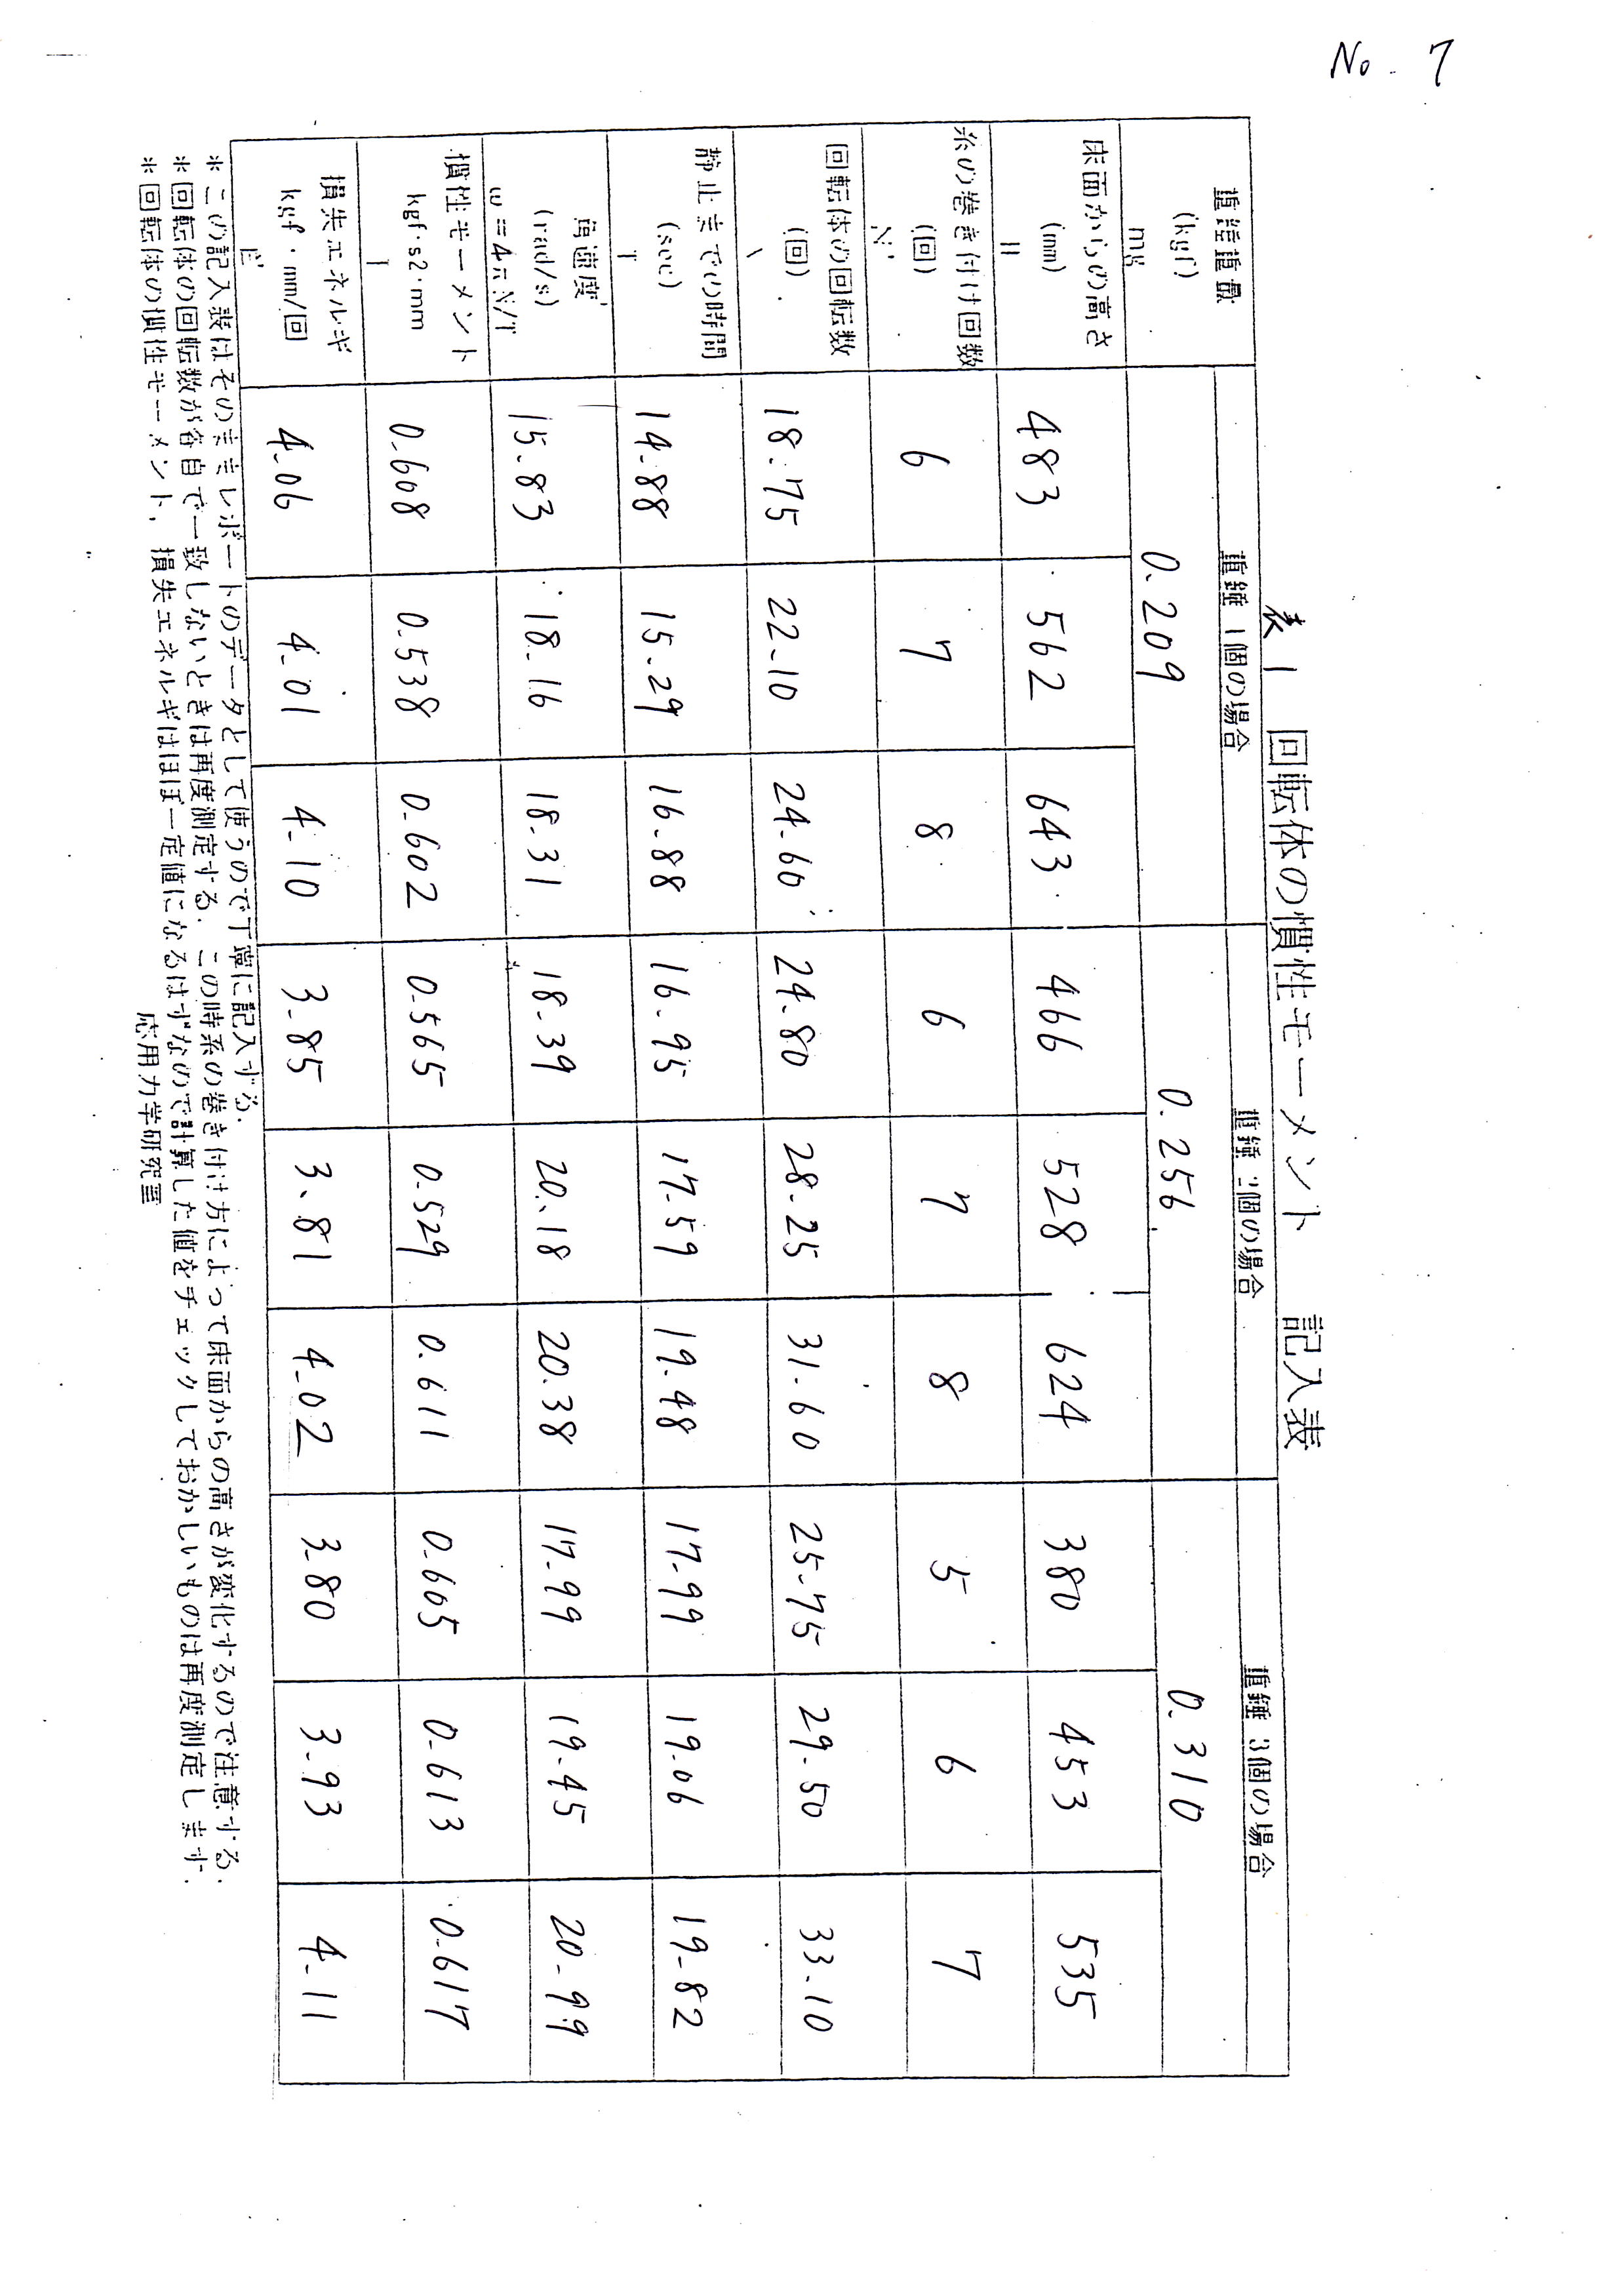 No. 7
表1 回転体の慣性モーメント 記入表
重錘 1個の場合 重錘 2個の場合 重錘 3個の場合
重錘重量
(kgf)
mg
0.209 0.256 0.310
床面からの高さ
(mm)
H
483 562 643 466 528 624 380 453 535
糸の巻き付け回数
(回)
N'
6 7 8 6 7 8 5 6 7
回転体の回転数
(回)
18.75 22.10 24.60 24.80 28.25 31.60 25.75 29.50 33.10
静止までの時間
(sec)
T
14.88 15.29 16.88 16.95 17.59 19.48 17.99 19.06 19.82
角速度
(rad/s)
ω=4πN/T
15.83 18.16 18.31 18.39 20.18 20.38 17.99 19.45 20.99
慣性モーメント
kgf・s2・mm
I
0.608 0.538 0.602 0.565 0.529 0.611 0.605 0.613 0.617
損失エネルギ
kgf・mm/回
E'
4.06 4.01 4.10 3.85 3.81 4.02 3.80 3.93 4.11
*この記入表はそのままレポートのデータとして使うので丁寧に記入する.
*回転体の回転数が各自で一致しないときは再度測定する. この時糸の巻き付け方によって床面からの高さが変化するので注意する.
*回転体の慣性モーメント, 損失エネルギはほぼ一定値になるはずなので計算した値をチェックしておかしいものは再度測定します.
応用力学研究室